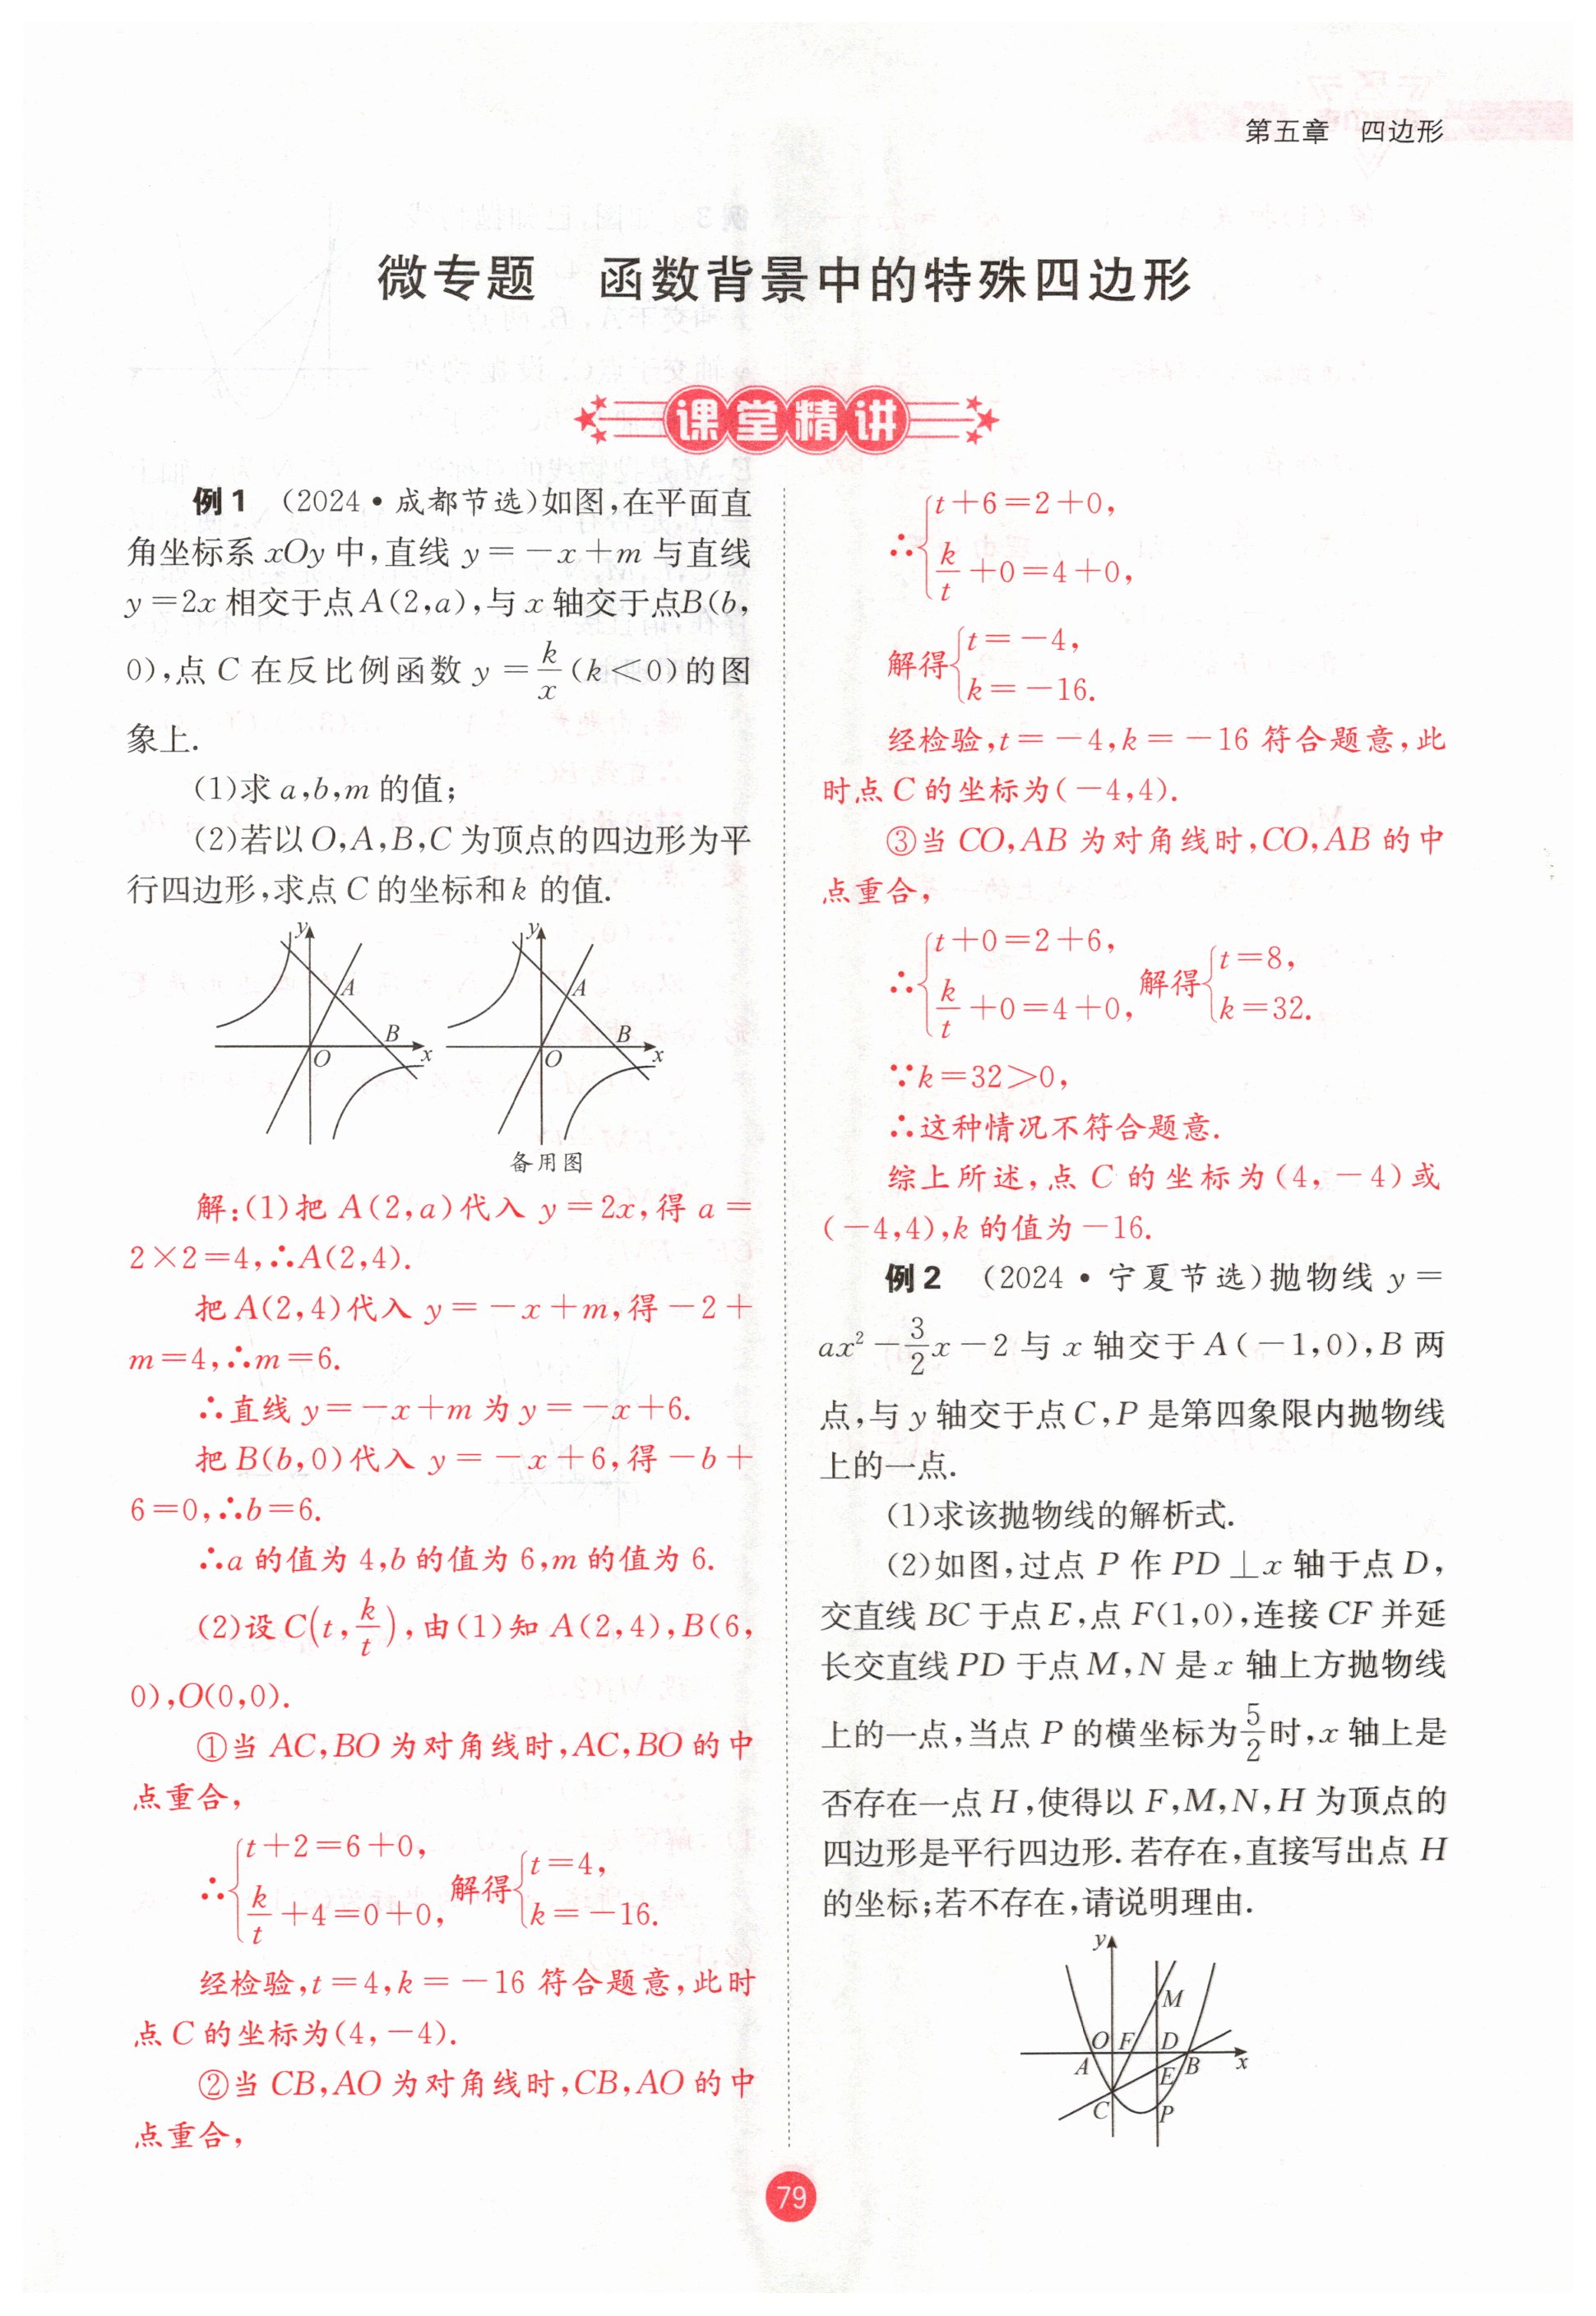 第五章 四边形
微专题 函数背景中的特殊四边形
课堂精讲
例1 (2024·成都节选)如图,在平面直
角坐标系 xOy 中,直线 y=-x+m 与直线
y=2x 相交于点A(2,a),与 x 轴交于点B(b,
0),点 C 在反比例函数 y=k/x(k<0)的图
象上.
(1)求 a,b,m 的值;
(2)若以O,A,B,C为顶点的四边形为平
行四边形,求点 C 的坐标和k 的值.
y A B O x
y A B O x
备用图
解:(1)把 A(2,a)代入 y=2x,得 a=
2×2=4,∴A(2,4).
把A(2,4)代入 y=-x+m,得-2+
m=4,∴m=6.
∴直线 y=-x+m 为 y=-x+6.
把B(b,0)代入 y=-x+6,得-b+
6=0,∴b=6.
∴a 的值为 4,b 的值为 6,m 的值为 6.
(2)设C(t,k/t),由(1)知 A(2,4),B(6,
0),O(0,0).
①当 AC,BO 为对角线时,AC,BO 的中
点重合,
∴{t+2=6+0, k/t+4=0+0, 解得{t=4, k=-16.
经检验,t=4,k=-16 符合题意,此时
点C的坐标为(4,-4).
②当CB,AO为对角线时,CB,AO的中
点重合,
∴{t+6=2+0, k/t+0=4+0,
解得{t=-4, k=-16.
经检验,t=-4,k=-16 符合题意,此
时点C的坐标为(-4,4).
③当 CO,AB 为对角线时,CO,AB 的中
点重合,
∴{t+0=2+6, k/t+0=4+0, 解得{t=8, k=32.
∵k=32>0,
∴这种情况不符合题意.
综上所述,点 C 的坐标为(4,-4)或
(-4,4),k 的值为-16.
例2 (2024·宁夏节选)抛物线 y=
ax²-3/2x-2 与 x 轴交于 A(-1,0),B 两
点,与 y 轴交于点C,P 是第四象限内抛物线
上的一点.
(1)求该抛物线的解析式.
(2)如图,过点 P 作 PD⊥x 轴于点 D,
交直线 BC 于点 E,点 F(1,0),连接 CF 并延
长交直线 PD 于点 M,N 是 x 轴上方抛物线
上的一点,当点 P 的横坐标为5/2时,x 轴上是
否存在一点 H,使得以 F,M,N,H 为顶点的
四边形是平行四边形.若存在,直接写出点 H
的坐标;若不存在,请说明理由.
y M O F D A E B x C P
79